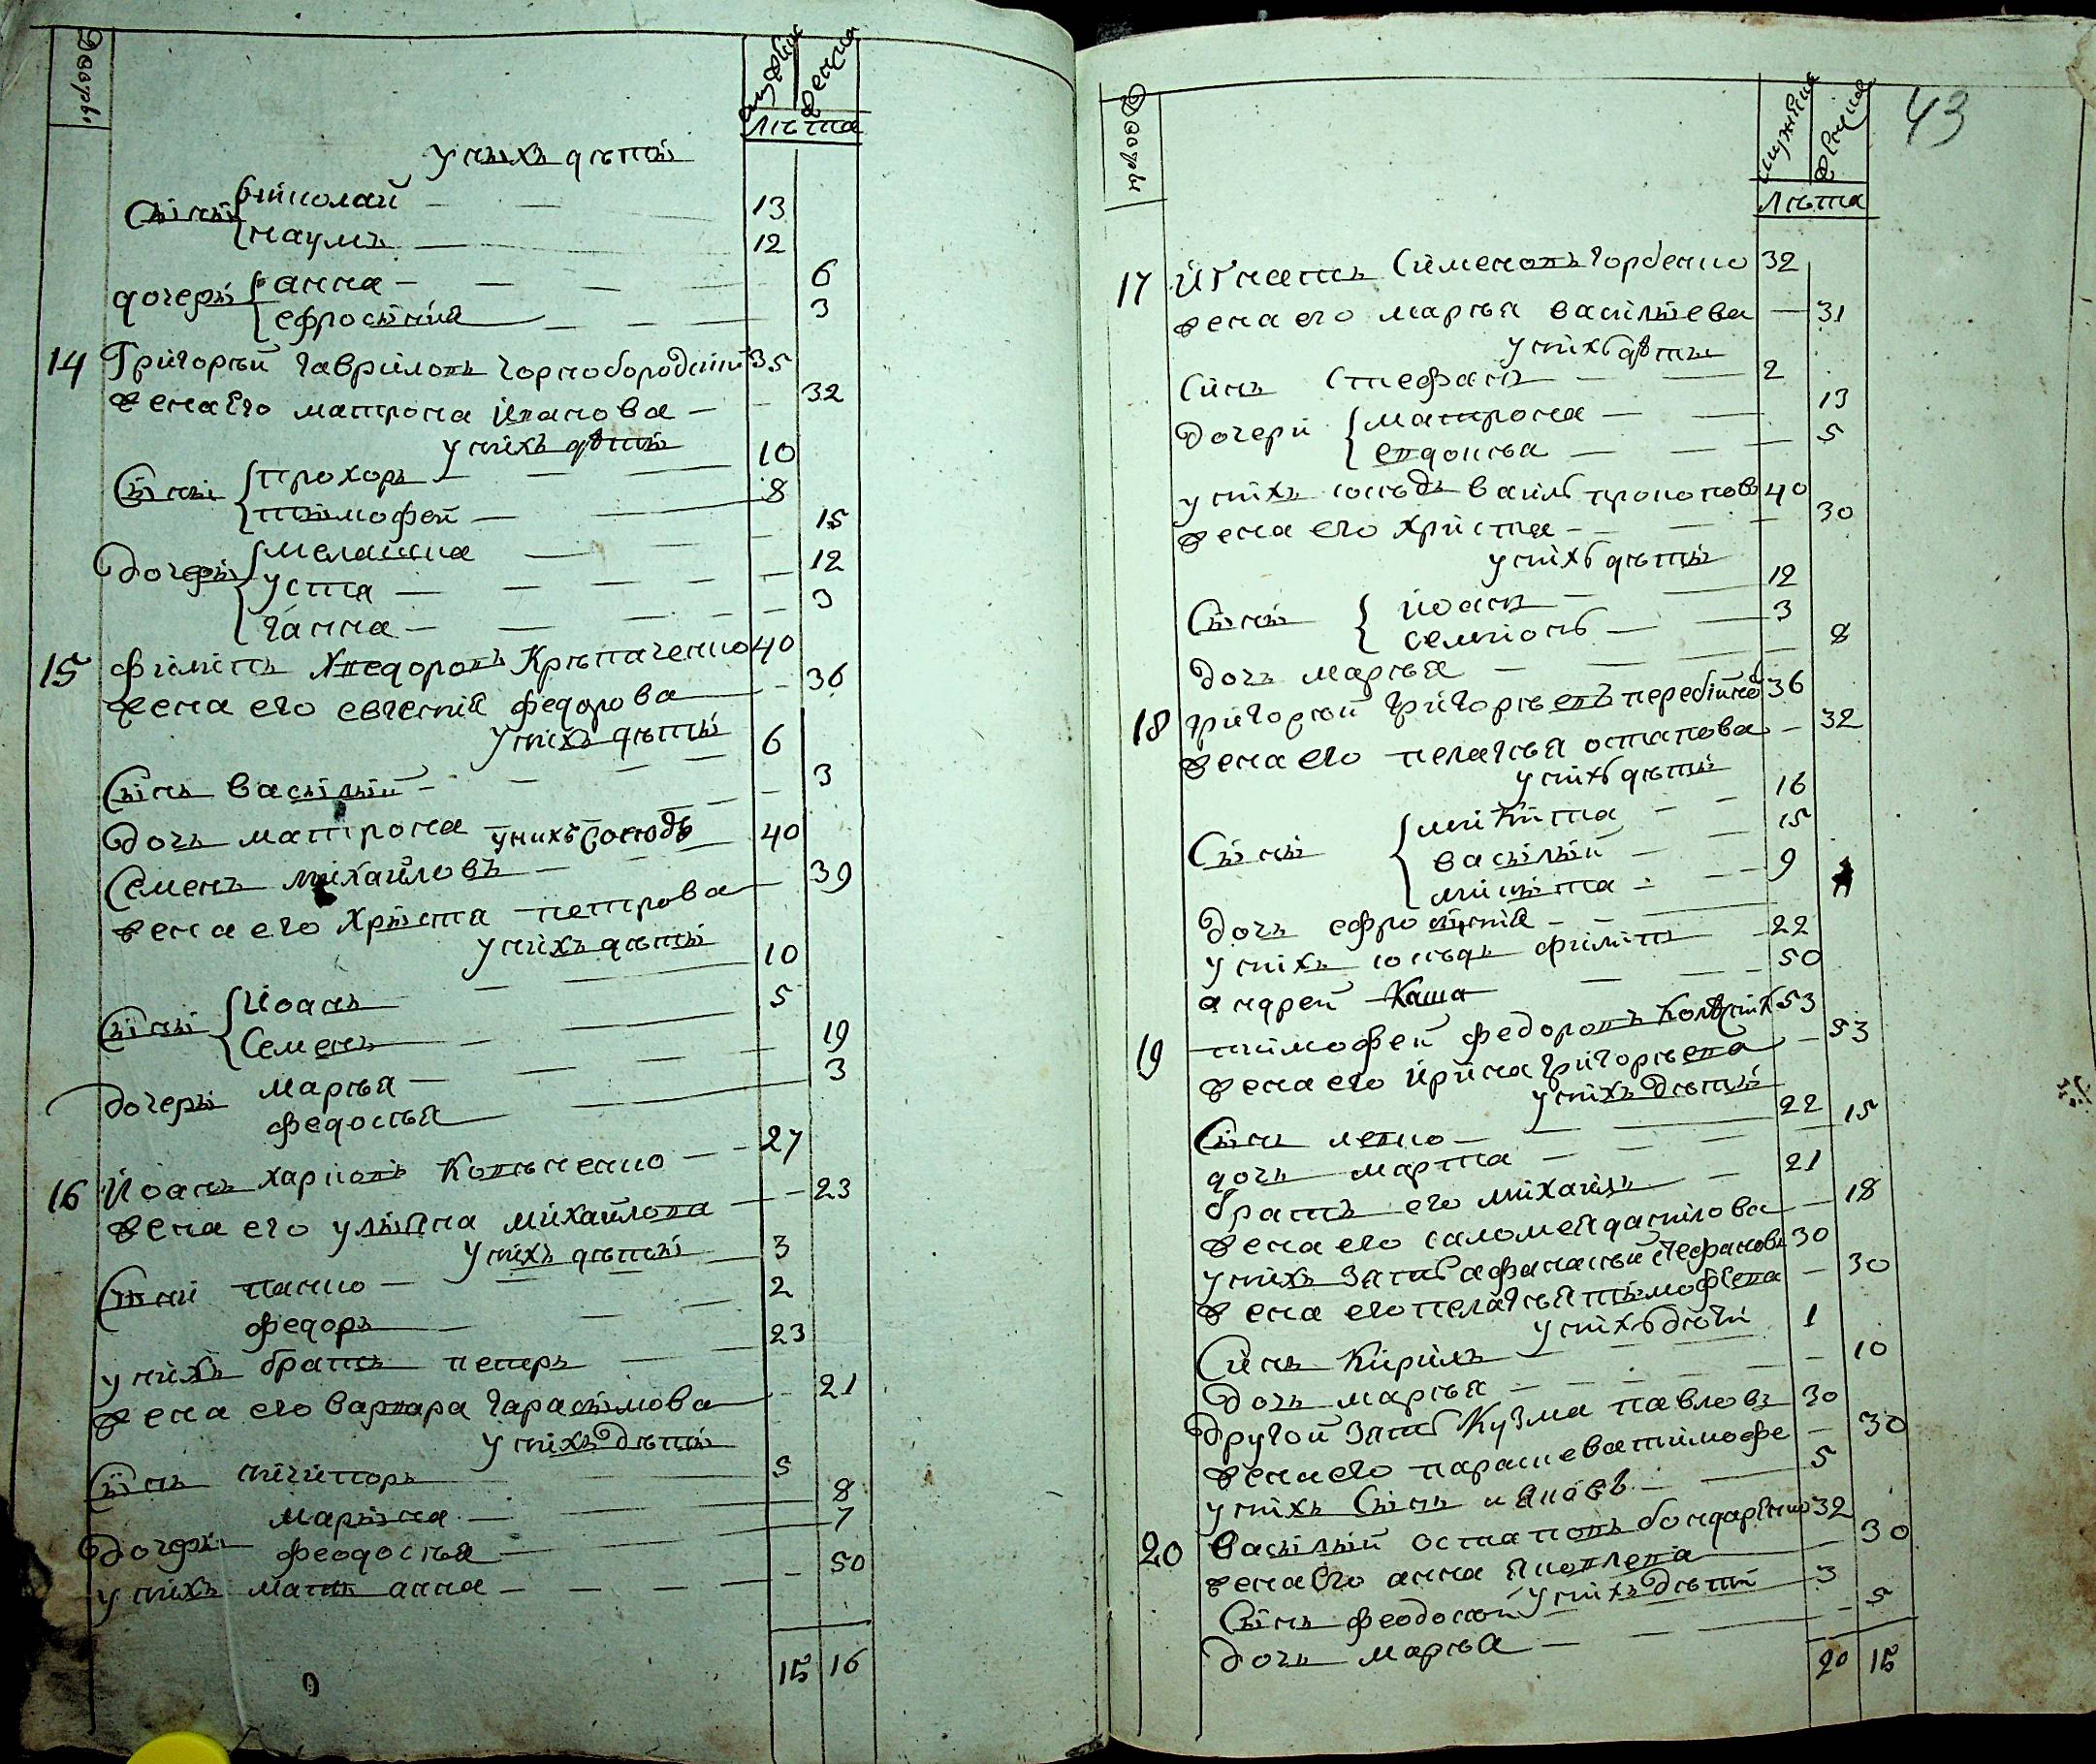 Дворы
мужеска
женска
Лѣта
у нихъ дѣти
Сыны
николай — 13
наумъ — 12
дочери
анна — 6
ефросиния — 3
14 Григорий Гавриловъ Чорнобородий 35
жена Его матрона иванова — 32
у нихъ дѣти
Сыны
прохоръ — 10
тимофей — 8
Дочери
мелашка — 15
устя — 12
ганна — 3
15 филипъ Федоровъ Крыпаченко 40
жена его евгения федорова — 36
у нихъ дѣти
Сынъ василий — 6
Дочь матрона — 3
у нихъ Сосюдъ
Семенъ михайловъ — 40
жена его христя петрова — 39
у нихъ дѣти
Сыны
Иоанъ — 10
Семенъ — 5
Дочери
марья — 19
федосья — 3
16 Иоанъ харковъ Копѣченко — 27
жена его улияна михайлова — 23
у нихъ дѣти
Сыны
панко — 3
федоръ — 2
у нихъ братъ петръ — 23
жена его варвара гарасимова — 21
у нихъ дѣти
Сынъ никиторъ — 5
Дочери
марина — 8
феодосия — 7
у нихъ мать анна — 50
15 16
43
Дворы
мужеска
женска
Лѣта
17 Игнатъ Сименовъ Горбенко 32
жена его марья васильева — 31
у нихъ дѣти
Синъ Стефанъ — 2
Дочери
матрона — 13
евдокия — 5
у нихъ сосѣдъ василь прокопов 40
жена его христя — 30
у нихъ дѣти
Сыны
иоанъ — 12
семионъ — 3
дочь марья — 8
18 григорий григорьевъ перебийно 36
жена его пелагѣя остапова — 32
у нихъ дѣти
Сыны
микита — 16
василий — 15
микита — 9
Дочь ефросиния —
у нихъ сосѣдъ филипъ — 22
андрей Каша — 50
19 тимофей федоровъ Колѣсник 53
жена его ирина григорьева — 53
у нихъ дѣти
Сынъ левко — 22
дочь марта — 15
братъ его михаилъ — 21
жена его саломея данилова — 18
у нихъ зять афанасий стефановъ 30
жена его пелагѣя тимофѣева — 30
у нихъ дѣти
Синъ Кирилъ — 1
Дочь марья — 10
Другой зять Кузма павловъ 30
жена его параскева тимофе — 30
у нихъ Сынъ яковъ — 5
20 василий остаповъ бондаренко 32
жена его анна яковлева — 30
у нихъ дѣти
Сынъ феодосий — 3
Дочь марья — 5
20 15